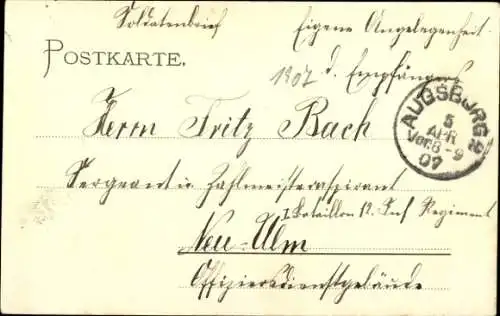 Soldatenbrief Eigene Angelegenheit
POSTKARTE.
d. Empfängers
1907
Herrn Fritz Bach
AUGSBURG 2
5
APR
Vor. 8-9
07
Sergeant u. Zahlmeisteraspirant
I. Bataillon 12. Inf Regiment
Neu-Ulm
Offiziersdienstgebäude